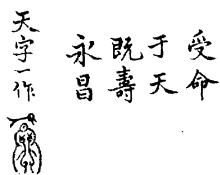 受命
于天
既壽
永昌
天字一作